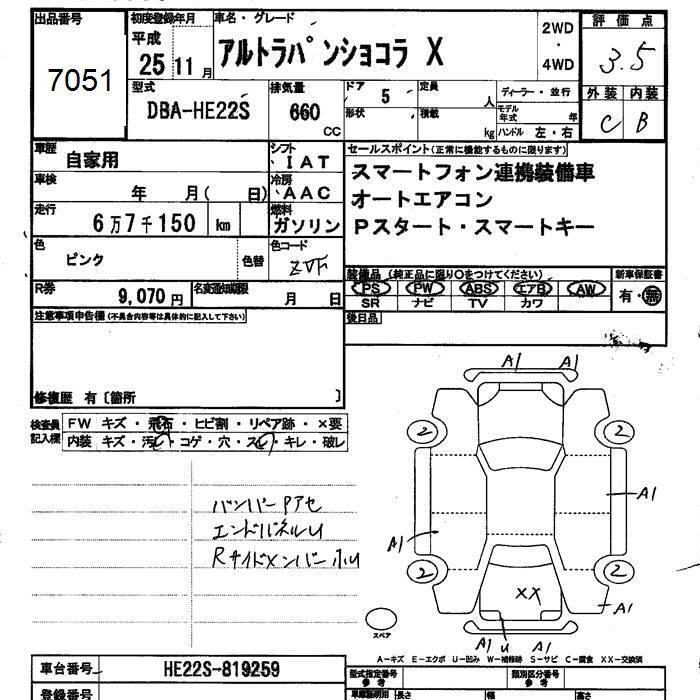 出品番号
7051
初度登録年月
平成
25 11 月
車名・グレード
アルトラパンショコラ X
2WD
・
4WD
評価点
3.5
外装 内装
C B
型式
DBA-HE22S
排気量
660
cc
ドア
5
形状
定員
人
積載
kg
ディーラー・並行
モデル年式
年
ハンドル 左・右
車歴
自家用
シフト
IAT
車検
年 月( 日)
冷房
AAC
走行
6万7千150 km
燃料
ガソリン
色
ピンク
色替
色コード
ZVF
R券
9,070 円
名変通知期限
月 日
セールスポイント(正常に機能するものに限ります)
スマートフォン連携装備車
オートエアコン
Pスタート・スマートキー
装備品(純正品に限り○をつけてください)
PS PW ABS エアB AW
SR ナビ TV カワ
新車保証書
有・無
後日品
注意事項申告欄(不具合内容等は具体的に記入して下さい)
修復歴 有〔箇所 〕
検査員
記入欄
FW キズ・飛石・ヒビ割・リペア跡・×要
内装 キズ・汚レ・コゲ・穴・スレ・キレ・破レ
バンパーPアセ
エンドパネルU
Rサイドメンバー小U
A1 A1
2 2
A1
A1
2 2
XX
A1
A1 U A1
スペア
A-キズ E-エクボ U-凹み W-補修跡 S-サビ C-腐食 XX-交換済
車台番号
HE22S-819259
型式指定番号
参考
類別区分番号
参考
登録番号
車庫証明用
参考
長さ
幅
高さ